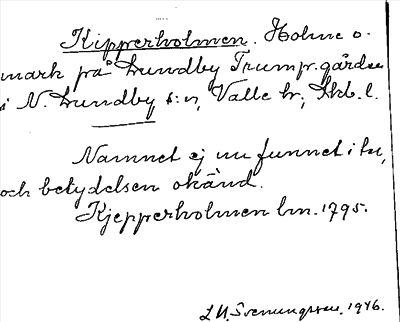 Kipperholmen. Holme o.
mark på Lundby Trumpr.gården
i N. Lundby s:n, Valle hr, Skb. l.
Namnet ej nu funnet i br,
och betydelsen okänd.
Kjepperholmen lm. 1795.
L. N. Svenungsson, 1946.